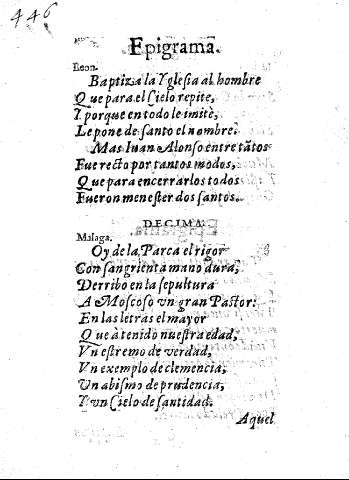 446
Epigrama.
Leon.
Baptiza la Yglesia al hombre
Que para el Cielo repite,
Y porque en todo le imite,
Le pone de santo el nombre:
Mas Iuan Alonso entre tãtos
Fue recto por tantos modos,
Que para encerrarlos todos
Fueron menester dos santos.
DECIMA.
Malaga.
Oy de la Parca el rigor
Con sangrienta mano dura,
Derribo en la sepultura
A Moscoso vn gran Pastor:
En las letras el mayor
Que à tenido nuestra edad,
Vn estremo de verdad,
Vn exemplo de clemencia,
Vn abismo de prudencia,
Y vn Cielo de santidad.
Aquel